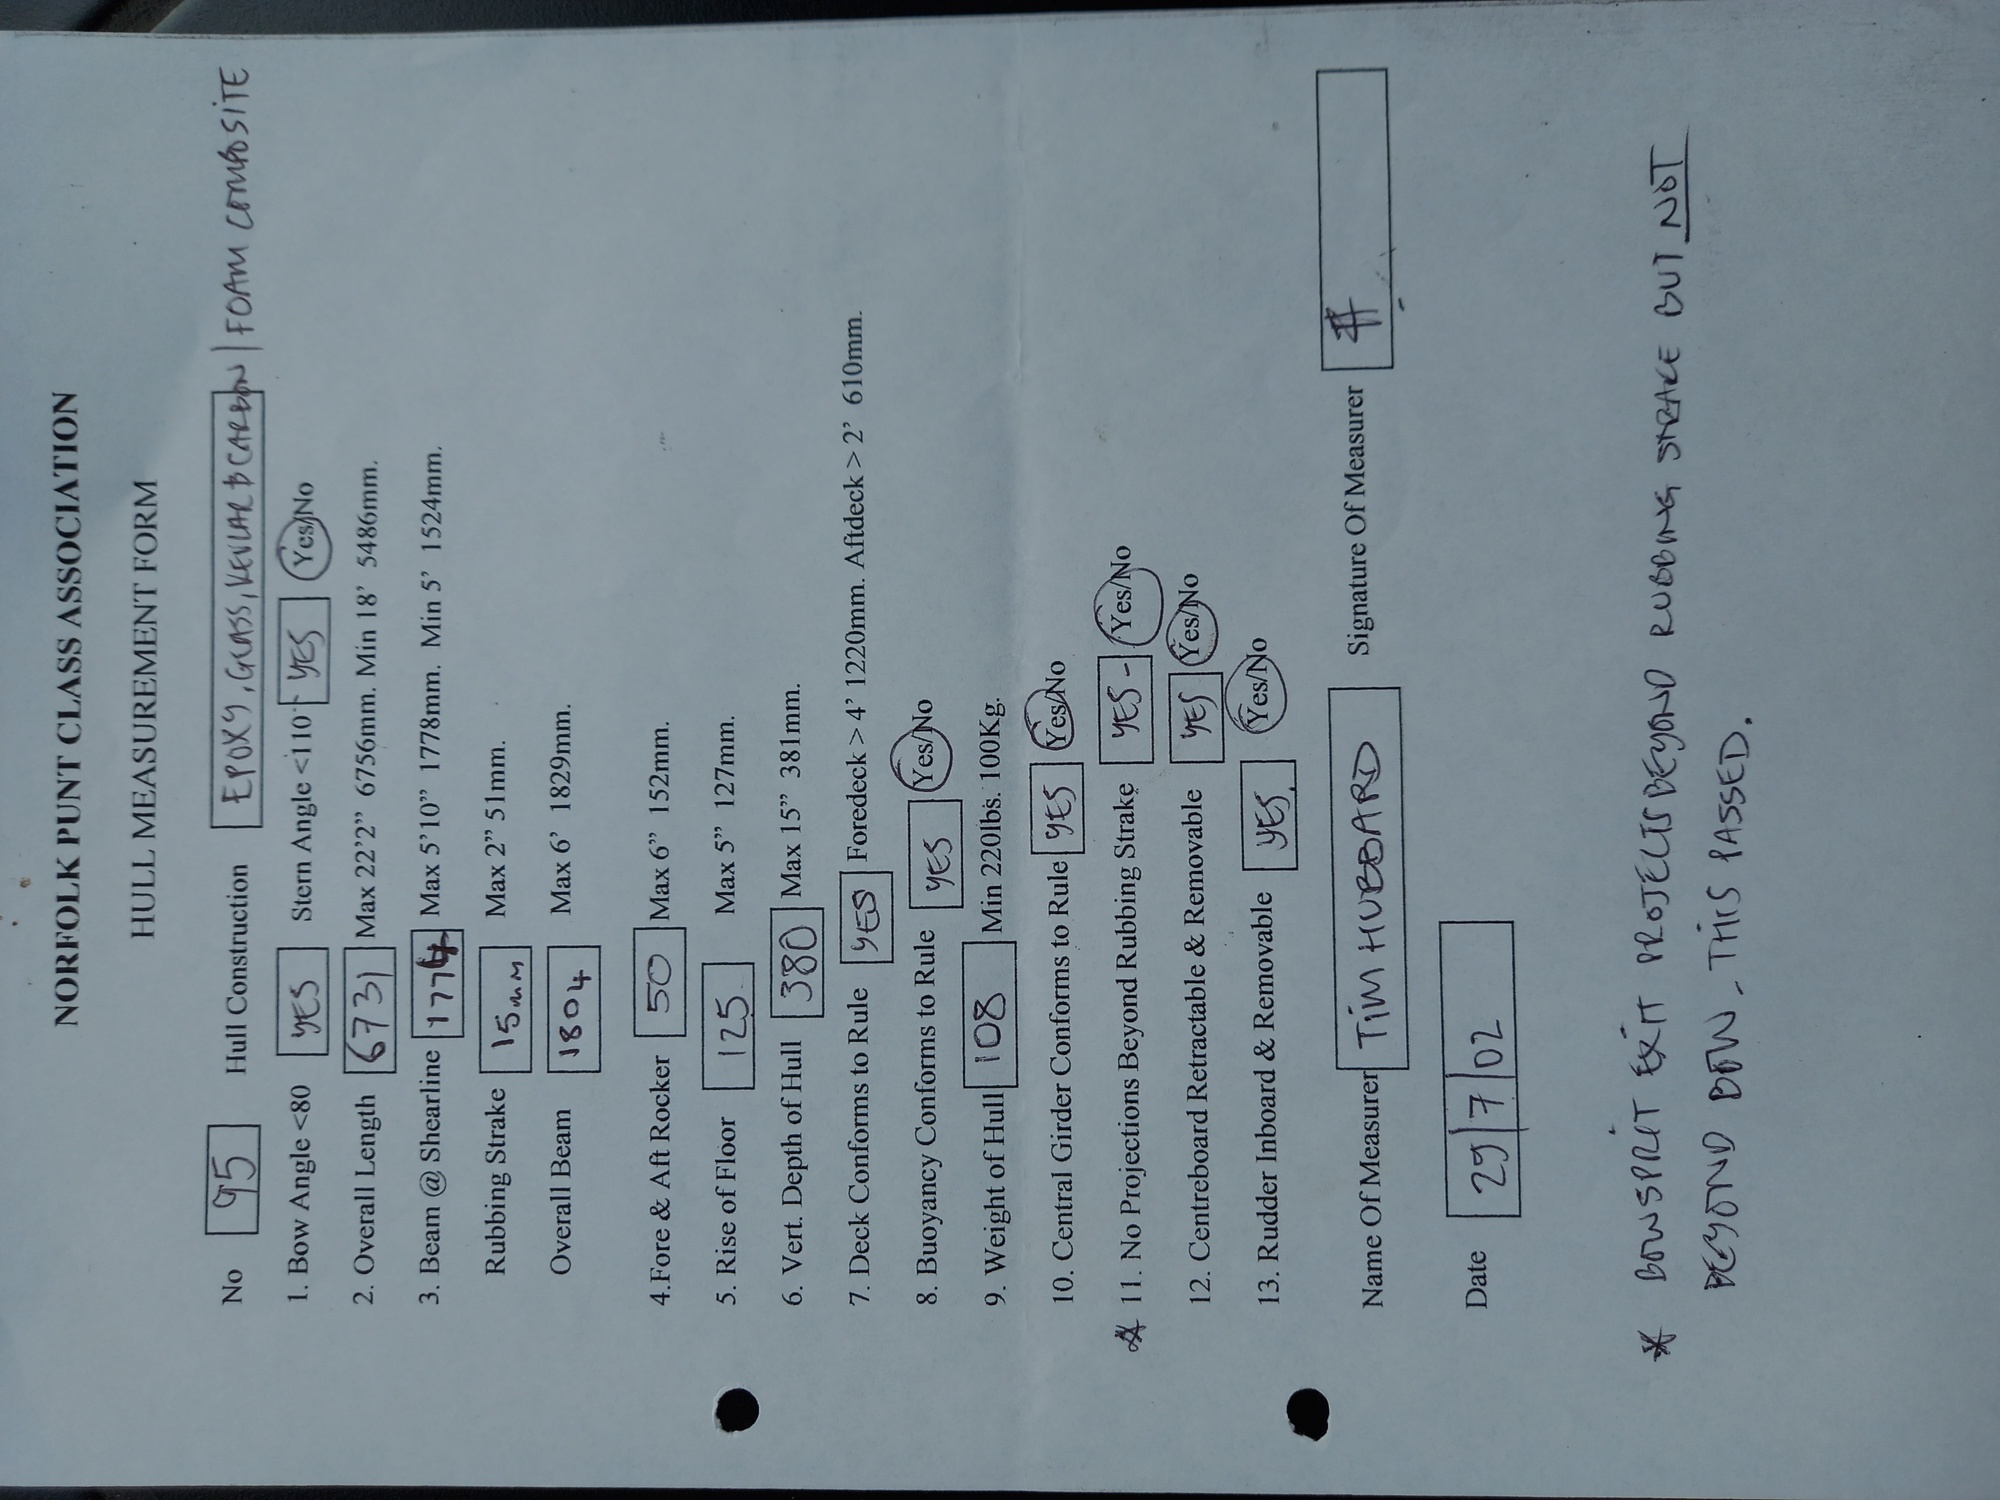 NORFOLK PUNT CLASS ASSOCIATION
HULL MEASUREMENT FORM
No 95 Hull Construction EPOXY, GLASS, KEVLAR & CARBON / FOAM COMPOSITE
1. Bow Angle <80 YES Stern Angle <110 YES Yes/No
2. Overall Length 6731 Max 22’2” 6756mm. Min 18’ 5486mm.
3. Beam @ Shearline 1774 Max 5’10” 1778mm. Min 5’ 1524mm.
Rubbing Strake 15mm Max 2” 51mm.
Overall Beam 1804 Max 6’ 1829mm.
4.Fore & Aft Rocker 50 Max 6” 152mm.
5. Rise of Floor 125 Max 5” 127mm.
6. Vert. Depth of Hull 380 Max 15” 381mm.
7. Deck Conforms to Rule YES Foredeck > 4’ 1220mm. Aftdeck > 2’ 610mm.
8. Buoyancy Conforms to Rule YES Yes/No
9. Weight of Hull 108 Min 220lbs. 100Kg.
10. Central Girder Conforms to Rule YES Yes/No
* 11. No Projections Beyond Rubbing Strake YES - Yes/No
12. Centreboard Retractable & Removable YES Yes/No
13. Rudder Inboard & Removable YES. Yes/No
Name Of Measurer TIM HUBBARD Signature Of Measurer
Date 29/7/02
* BOWSPRIT EXIT PROJECTS BEYOND RUBBING STRAKE BUT NOT
BEYOND BOW - THIS PASSED.